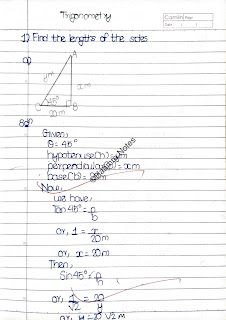 Trigonometry
Date
Page
1) Find the lengths of the sides
a)
A
ym
xm
45°
C
B
20m
Solⁿ
Given,
θ = 45°
hypotenuse(h) = ym
perpendicular(p) = xm
base(b) = 20m
Now,
we have,
Tan 45° = p/b
or, 1 = x/20m
or, x = 20m
Then,
Sin 45° = p/h
or, 1/√2 = 20/y
or, y = 20√2 m